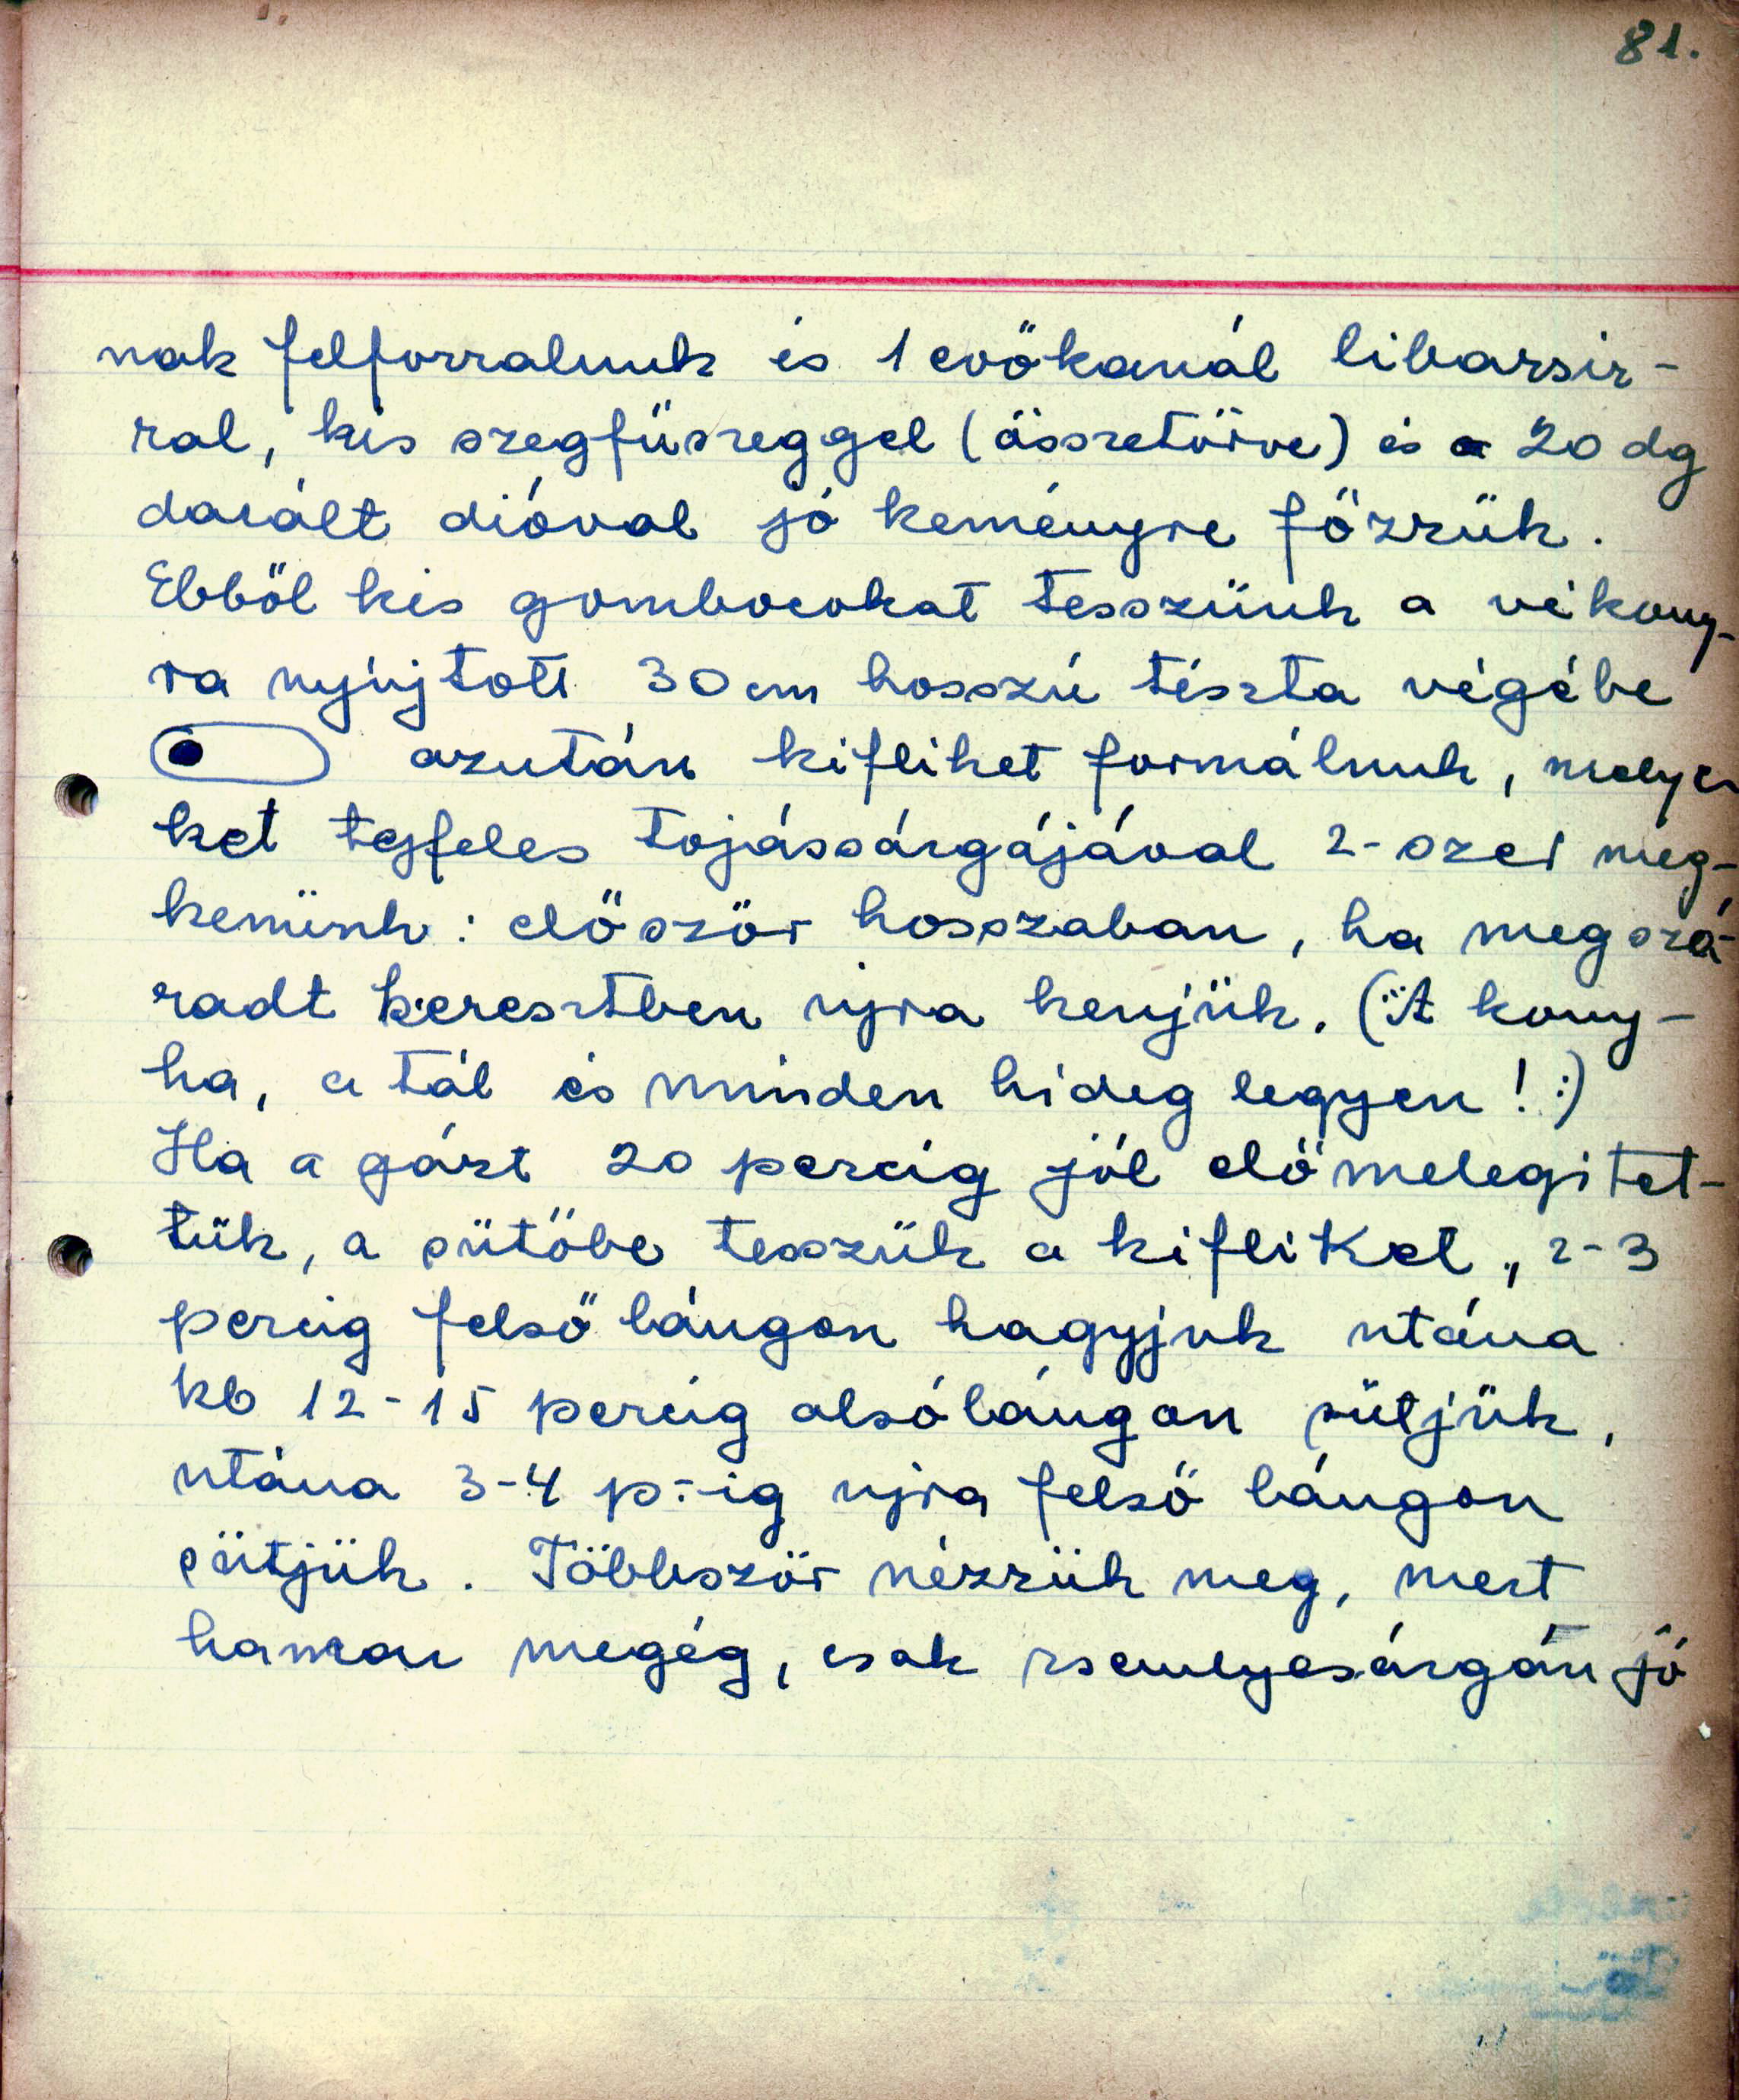 81.
nak felforralunk és 1 evőkanál libarsir-
ral, kis szegfüszeggel (összetörve) és a 20 dg
darált dióval jó keményre főzzük.
Ebből kis gombocokat teszünk a vékony-
ra nyújtott 30 cm hosszú tészta végébe
azután kifliket formálunk, melye
ket tejfeles tojássárgájával 2-szer meg-
kenünk: először hosszaban, ha megszá-
radt keresztben ujra kenjük. (: A kony-
ha, a tál és minden hideg legyen! :)
Ha a gázt 20 percig jól előmelegitet-
tük, a sütőbe tesszük a kifliket, 2-3
percig felső lángon hagyjuk utána
kb 12-15 percig alsólángon sütjük,
utána 3-4 p.-ig ujra felső lángon
sütjük. Többször nézzük meg, mert
hamar megég, csak zsemlyesárgán jó